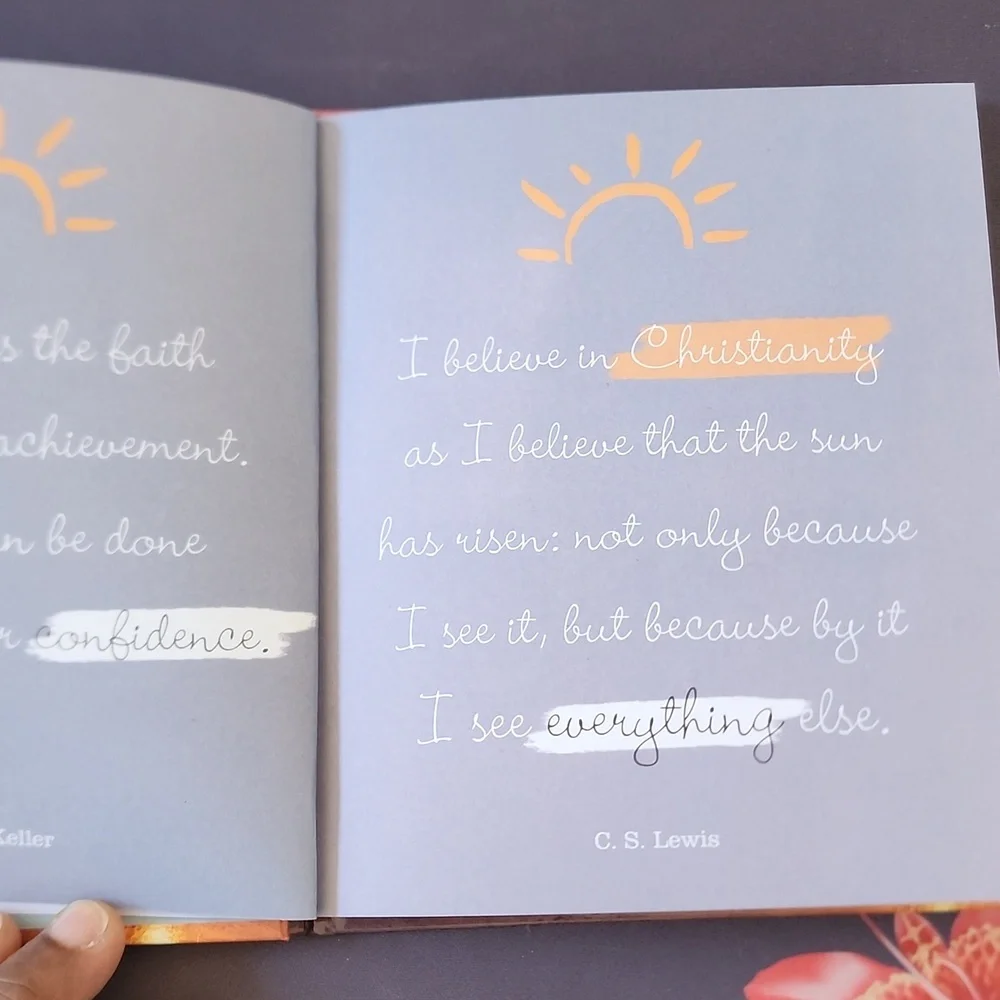 s the faith
achievement.
be done
confidence.
Keller
I believe in Christianity
as I believe that the sun
has risen: not only because
I see it, but because by it
I see everything else.
C. S. Lewis